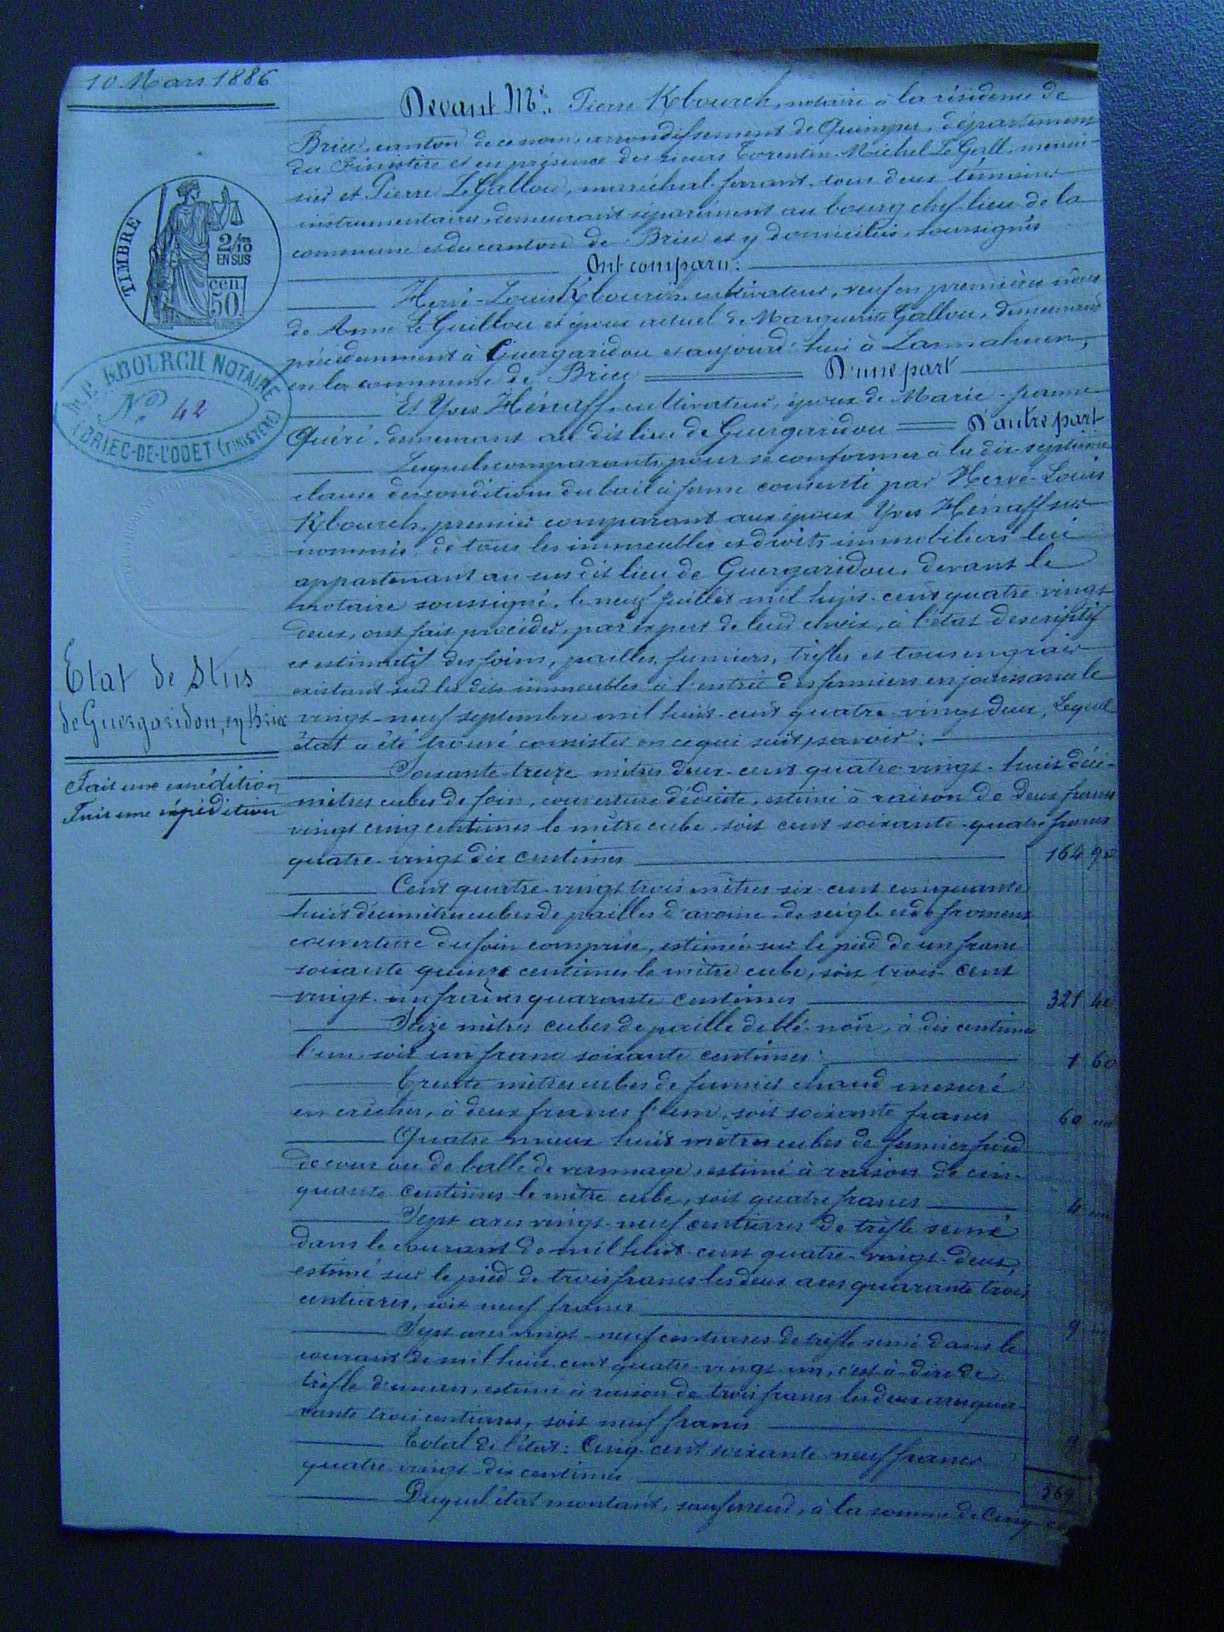 10 Mars 1886
Devant Me. Pierre Kbourch, notaire à la résidence de
Briec, canton de ce nom, arrondissement de Quimper, département
du Finistère et en présence des sieurs Corentin-Michel Le Gall, menui-
sier et Pierre Le Gallou, maréchal-ferrant, tous deux témoins
instrumentaires, demeurant séparément au bourg chef-lieu de la
commune et du canton de Briec et y domiciliés, soussignés
Ont comparu:
Hervé-Louis Kbourch, cultivateur, veuf en premières nôces
de Anne Le Guillou et époux actuel de Marguerite Gallou, demeurant
précédemment à Guergaridou et aujourd'hui à Lannahuen,
en la commune de Briec D'une part
Et Yves Hénaff, cultivateur, époux de Marie-Jeanne
Quéré, demeurant au dit lieu de Guergaridou D'autre part
Lesquels comparants, pour se conformer à la dix-septième
clause des conditions du bail à ferme consenti par Hervé-Louis
Kbourch, premier comparant aux époux Yves Hénaff sus
nommés, de tous les immeubles et droits immobiliers lui
appartenant au susdit lieu de Guergaridou, devant le
notaire soussigné, le neuf juillet mil huit-cent quatre-vingt
deux, ont fait procéder, par expert de leur choix, à l'état descriptif
et estimatif des foins, pailles, fumiers, trèfles et tous engrais
existant sur les dits immeubles à l'entrée des fermiers en jouissance le
vingt-neuf septembre mil huit-cent quatre-vingt deux, Lequel
état a été trouvé consister en ce qui suit, savoir:
Soixante-treize mètres deux-cent quatre-vingt-huit déci-
mètres cubes de foin, couverture déduite, estimé à raison de deux francs
vingt cinq centimes le mètre cube, soit cent soixante-quatre francs
quatre-vingt dix centimes 164 90
Cent quatre-vingt trois mètres six-cent cinquante
huit décimètres cubes de pailles d'avoine, de seigle et de froment
couverture du foin comprise, estimées sur le pied de un franc
soixante quinze centimes le mètre cube, soit trois-cent
vingt-un francs quarante centimes 321 40
Seize mètres cubes de paille de blé-noir, à dix centimes
l'un, soit un franc soixante centimes 1 60
Trente mètres cubes de fumier chaud mesuré
en crèches, à deux francs l'un, soit soixante francs 60
Quatre mieux huit mètres cubes de fumier froid
de cour ou de balle de vannage, estimé à raison de cin-
quante centimes le mètre cube, soit quatre francs 4
Sept ares vingt-neuf centiares de trèfle semé
dans le courant de mil huit-cent quatre-vingt-deux,
estimé sur le pied de trois francs les deux ares quarante trois
centiares, soit neuf francs 9
Sept ares vingt-neuf centiares de trèfle semé dans le
courant de mil huit-cent quatre-vingt-un, c'est-à-dire de
trèfle d'un an, estimé à raison de trois francs les deux ares qua-
rante trois centiares, soit neuf francs 9
Total de l'état: Cinq-cent soixante-neuf francs
quatre-vingt-dix centimes 569
Duquel état montant, sauf erreur, à la somme de Cinq-
TIMBRE
2/10
EN SUS
cen.
50
Me. P. KBOURCH NOTAIRE
No 42
A BRIEC-DE-L'ODET (FINISTERE)
Etat de Stus
de Guergaridou, en Briec
Fait une expédition
Fait une expédition